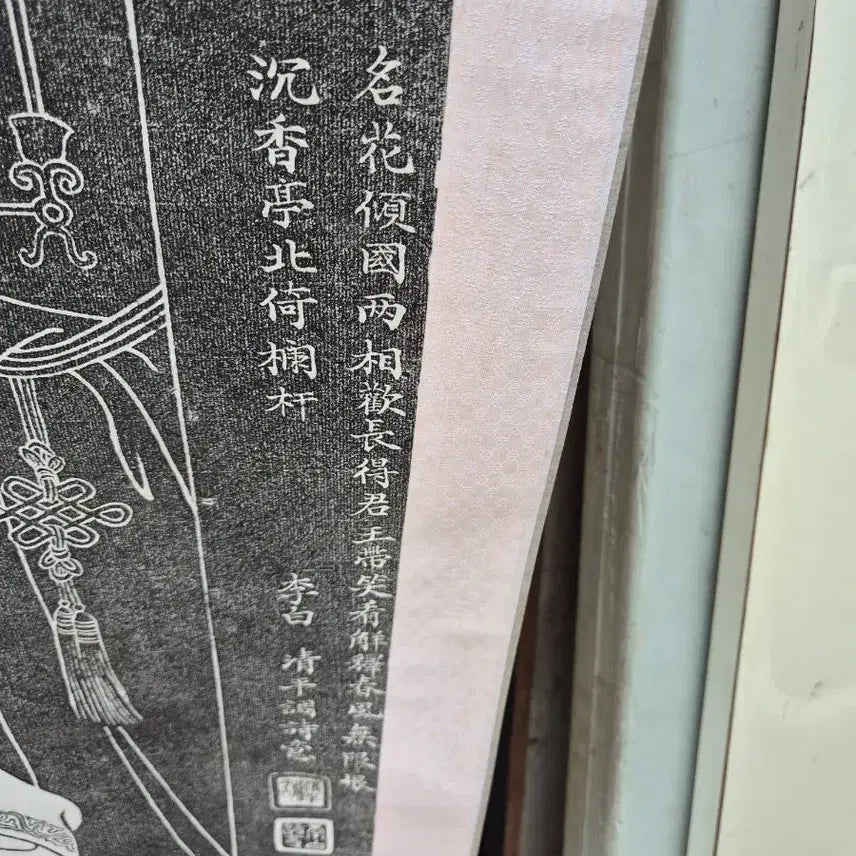 名花傾國两相歡長得君王帶笑看解釋春風無限恨
沉香亭北倚欄杆
李白 清平調詩意